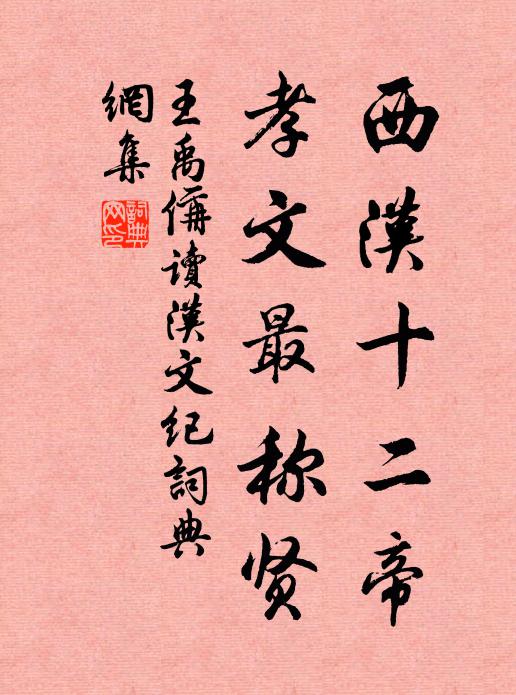 西漢十二帝
孝文最称贤
王禹偁讀漢文紀詞典
網集
詞典
网印